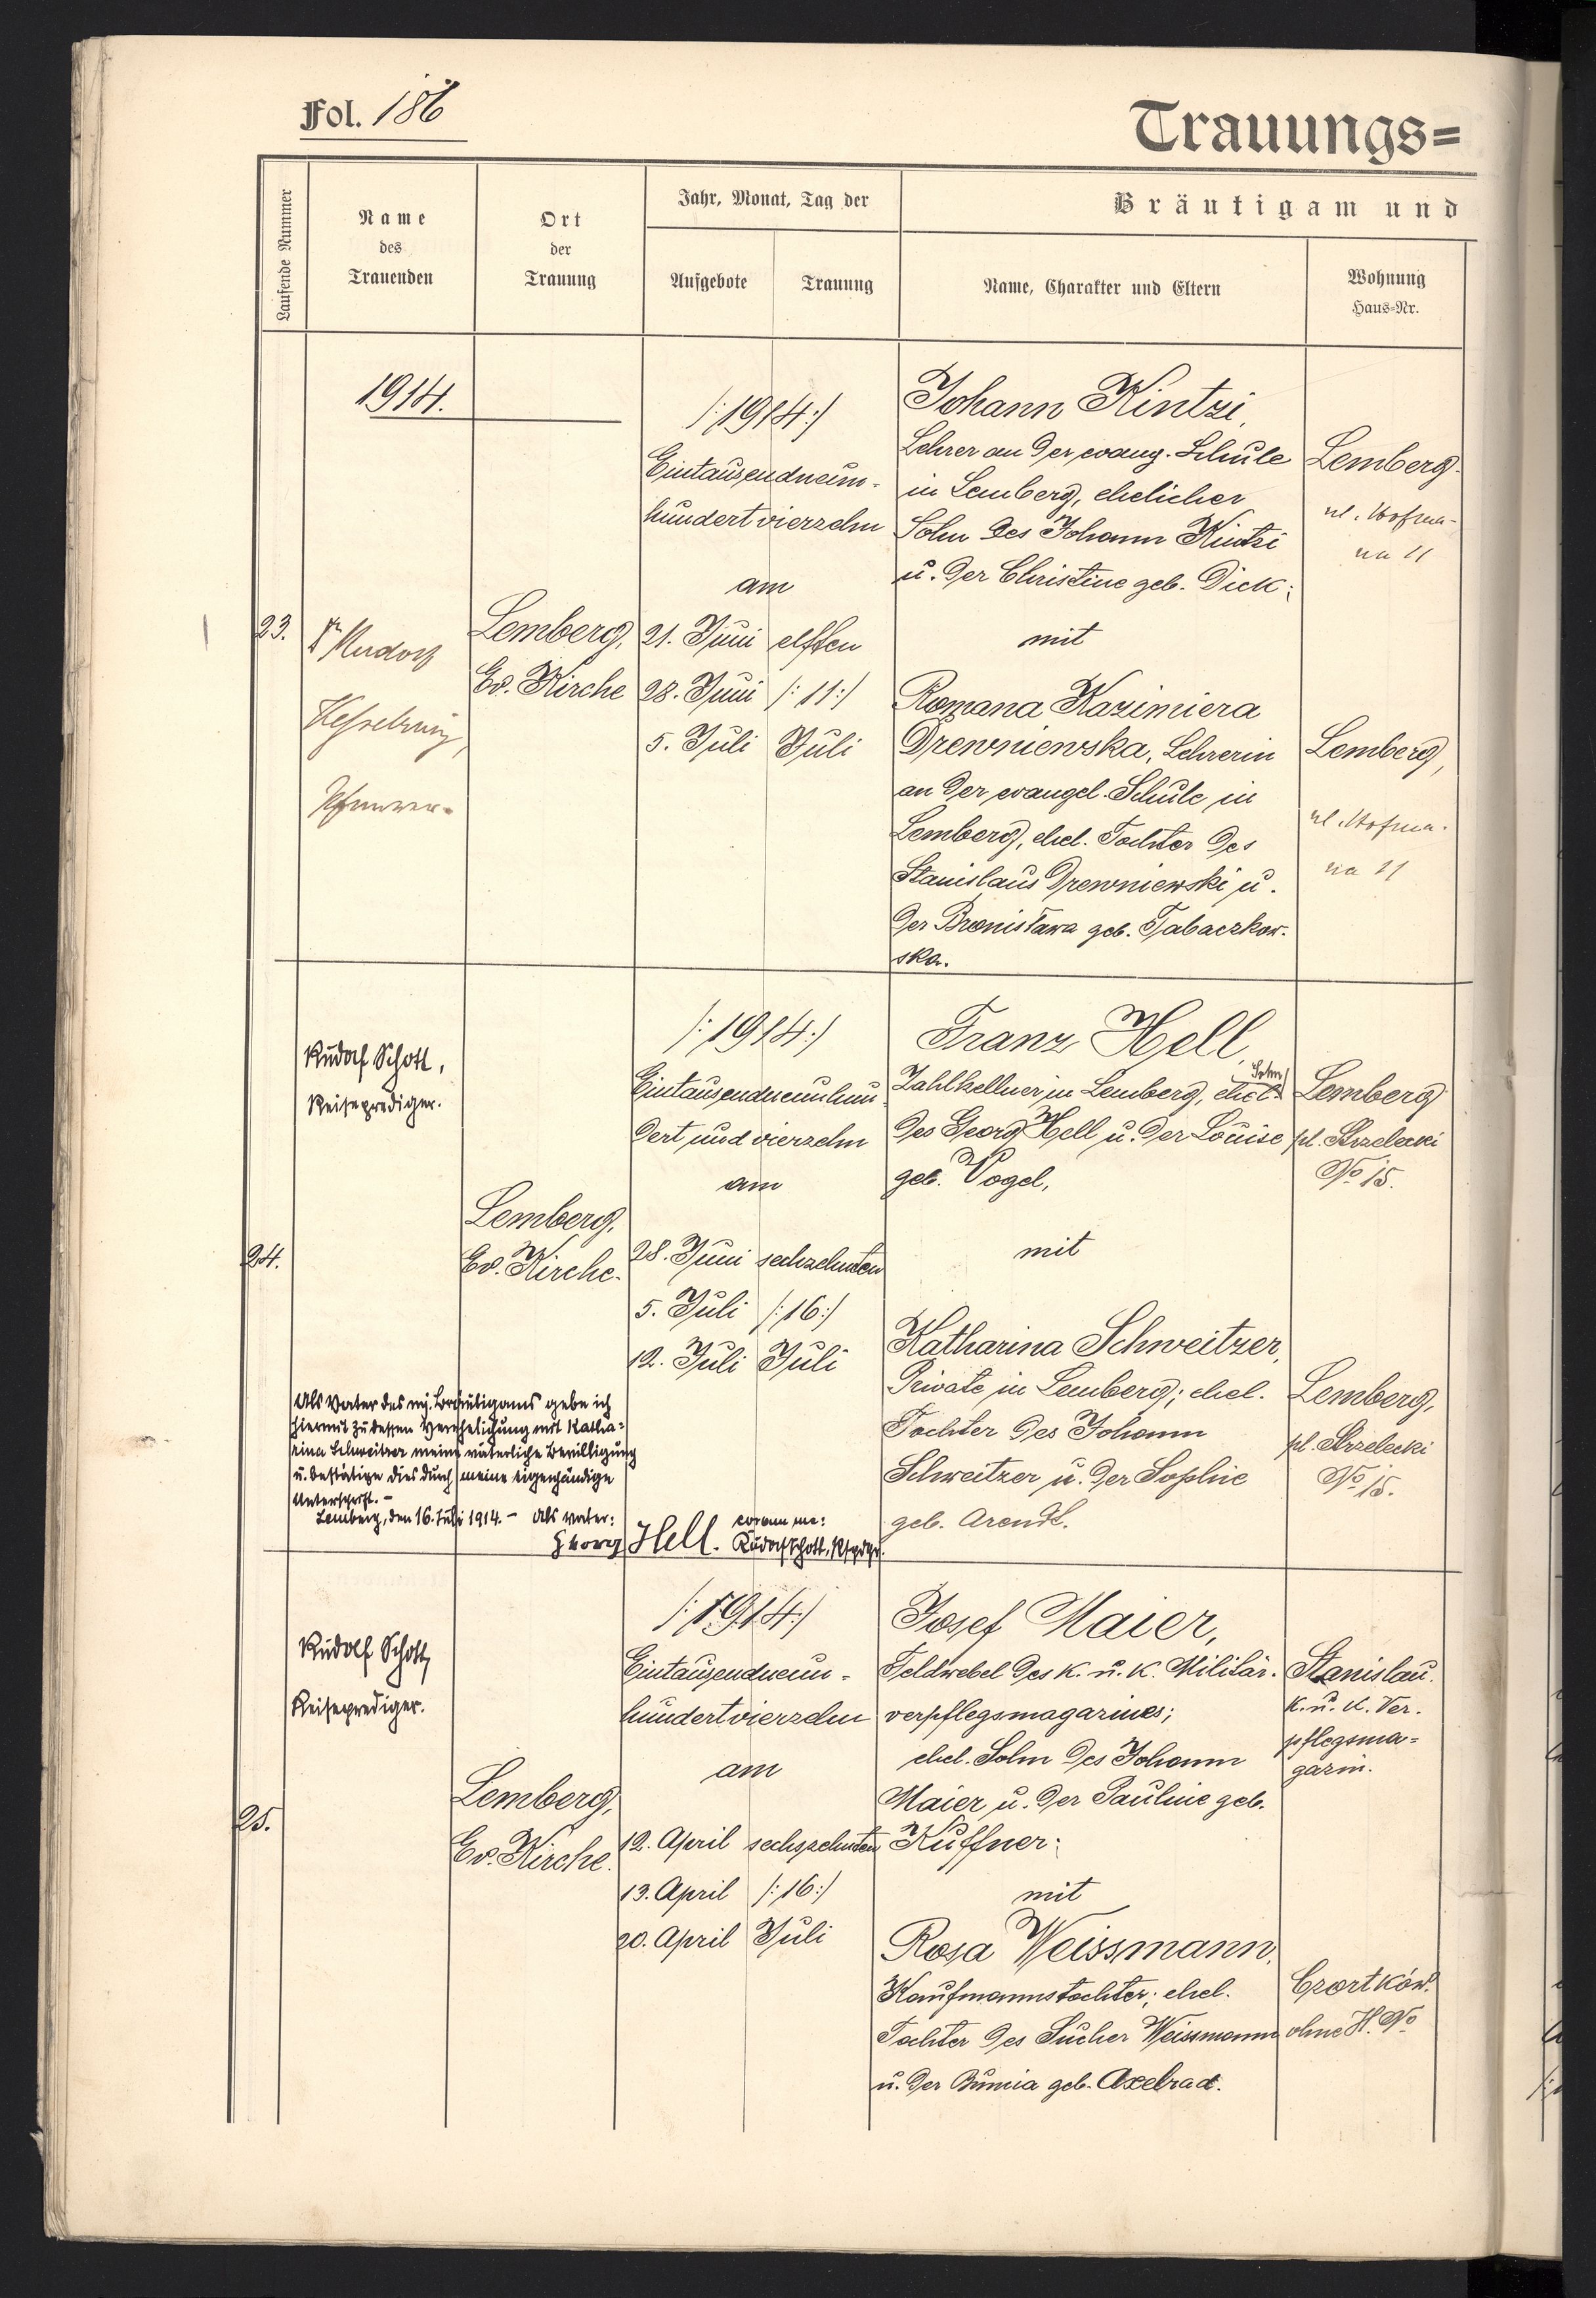 Fol. 186
Trauungs=
Laufende Nummer
Name
des
Trauenden
Ort
der
Trauung
Jahr, Monat, Tag der
Aufgebote
Trauung
Bräutigam und
Name, Charakter und Eltern
Wohnung
Haus-Nr.
1914.
23.
Dr Rudolf
Kesselring,
Pfarrer.
Lemberg,
Ev. Kirche
/:1914:/
Eintausendneun-
hundertvierzehn
am
21. Juni elften
28. Juni /:11:/
5. Juli Juli
Johann Kintzi,
Lehrer an der evang. Schule
in Lemberg, ehelicher
Sohn des Johann Kintzi
u. der Christine geb. Dick;
mit
Romana Kazimiera
Drewniewska, Lehrerin
an der evangel. Schule in
Lemberg, ehel. Tochter des
Stanislaus Drewniewski u.
der Bronisława geb. Tabaczkow-
ska.
Lemberg.
ul. Hofma-
na 11
Lemberg,
ul. Hofma-
na 11
24.
Rudolf Schott,
Reiseprediger.
Lemberg,
Ev. Kirche.
/:1914:/
Eintausendneunhun-
dert und vierzehn
am
28. Juni sechzehnten
5. Juli /:16:/
12. Juli Juli
Franz Hell,
Zahlkellner in Lemberg, ehel. Sohn
des Georg Hell u. der Louise
geb. Vogel,
mit
Katharina Schweitzer,
Private in Lemberg; ehel.
Tochter des Johann
Schweitzer u. der Sophie
geb. Arendt.
Lemberg
pl. Strzelecki
No 15.
Lemberg,
pl. Strzelecki
No 15.
Als Vater des mj. Bräutigams gebe ich
hiermit zu dessen Verehelichung mit Katha-
rina Schweitzer meine väterliche Bewilligung
u. bestätige dies durch meine eigenhändige
Unterschrift. -
Lemberg, den 16. Juli 1914. - Als Vater: coram me:
Georg Hell. Rudolf Schott, Rspdgr.
25.
Rudolf Schott,
Reiseprediger.
Lemberg,
Ev. Kirche.
/:1914:/
Eintausendneun-
hundertvierzehn
am
12. April sechszehnten
13. April /:16:/
20. April Juli
Josef Maier,
Feldwebel des k. u. k. Militär-
verpflegsmagazines;
ehel. Sohn des Johann
Maier u. der Pauline geb.
Kuffner;
mit
Rosa Weissmann,
Kaufmannstochter; ehel.
Tochter des Sucher Weissmann
u. der Bumia geb. Axelrad.
Stanislau.
k. u. k. Ver-
pflegsma-
gazin.
Czortków.
ohne H. No